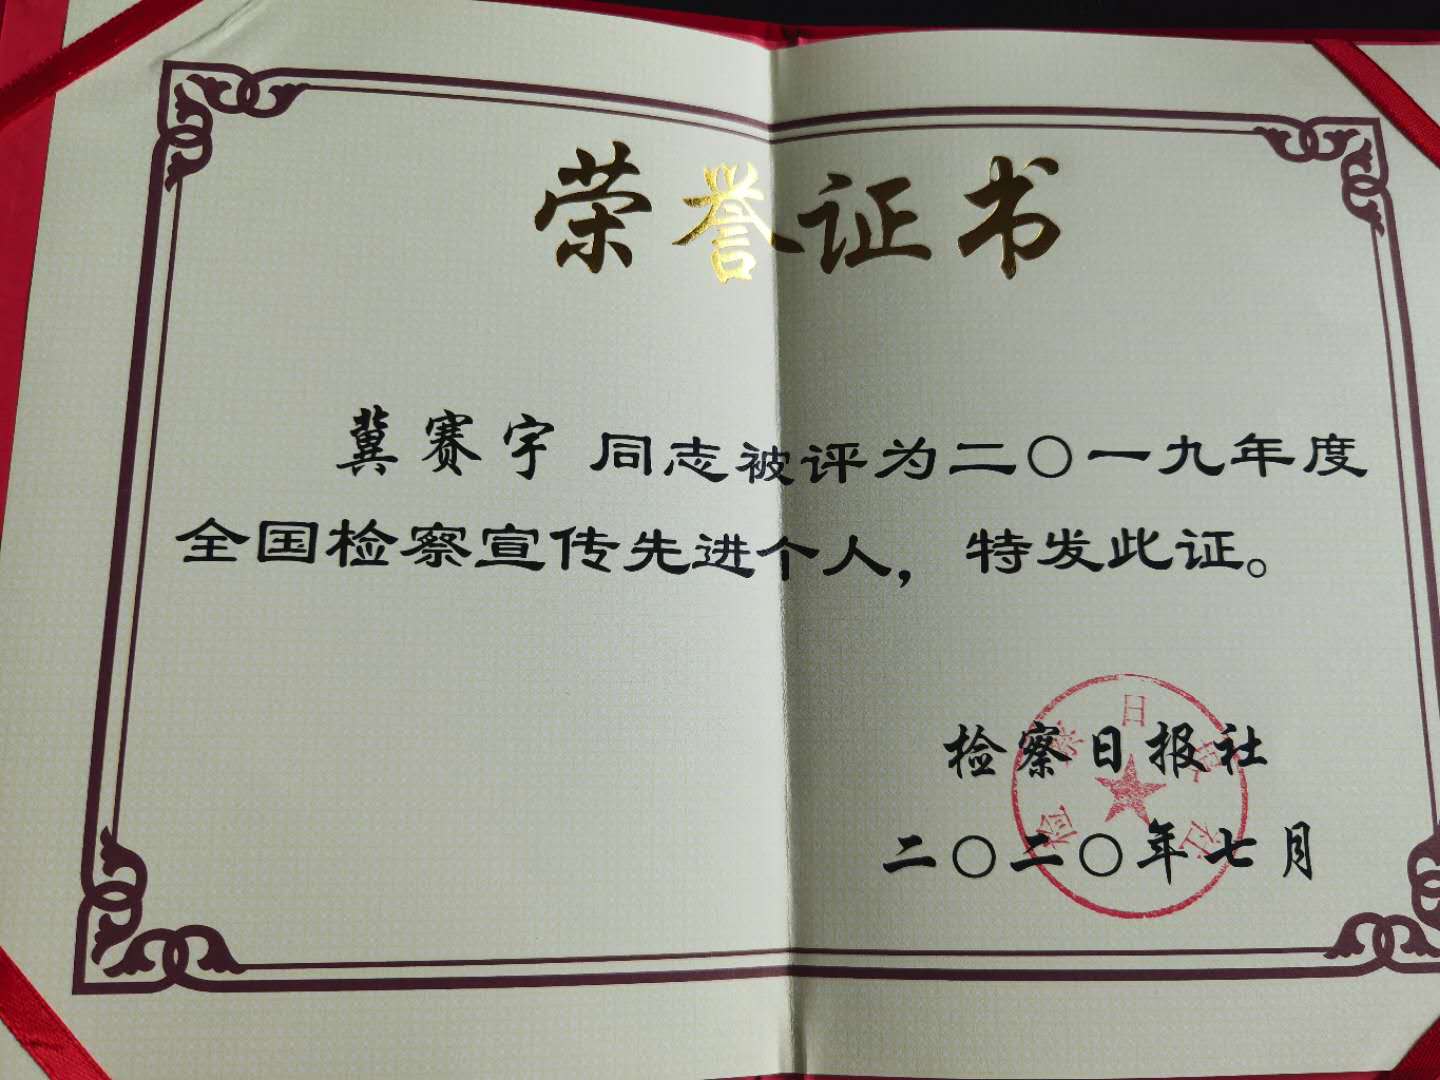 荣誉证书
冀赛宇 同志被评为二〇一九年度
全国检察宣传先进个人，特发此证。
检察日报社
二〇二〇年七月
检察日报社